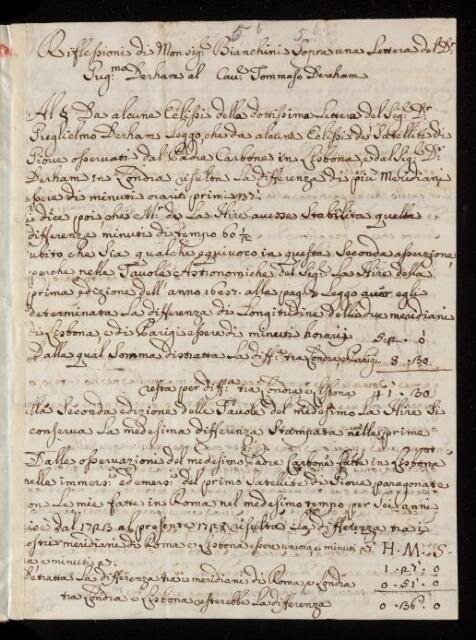 5 6 5
Riflessioni di Monsig.r Bianchini sopra una Lettera del D.r
Gug.mo Derham al Cav.r Tommaso Dereham
Al § Da alcune Eclissi della dottissima Lettera del Sig.r D.r
Guglielmo Derham Leggo, che da alcune Eclissi de Satelliti di
Giove osservati dal Padre Carbone in Lisbona, e dal Sig.r D.r
Derham in Londra risulta La differenza di più Meridiani
essere di minuti orarij primi
si dice poi che Mr de La Hire avesse stabilita quella
differenza minuti di tempo 60 1/2
Dubito che sia qualche equivoco in questa seconda assersione,
perche nelle Tavole Astronomiche del Sig.r La Hire della
prima edizione dell'anno 1687. alla pag. 7 Leggo aver egli
determinata La differenza di Longitudine delli due meridiani
di Lisbona e di Parigi essere di minuti horarij
0
Dalla qual somma distratta La diff.za tra Londra, e Parigi 8. 30
resta per diff.za tra Londra e Lisbona 41. 30
Alla seconda edizione delle Tavole del medesimo La Hire si
conserva La medesima differenza stampata nelle prime
Dalle osservazione del medesimo Padre Carbone fatte in Lisbona
nelle immersi ed emersi del primo Satellite di Giove paragonate
con Le mie fatte in Roma nel medesimo tempo per sei anni
cioè dal 1723 al presente 1728 risulta La differenza tra i
nostri meridiani di Roma e Lisbona essere un ora e minuti 27. H. M. S.
ora e minuti 27: 1. 27. 0
Detratta La differenza tra i meridiani di Roma e Londra 0. 51. 0
tra Londra e Lisbona resterebbe La differenza 0. 36. 0